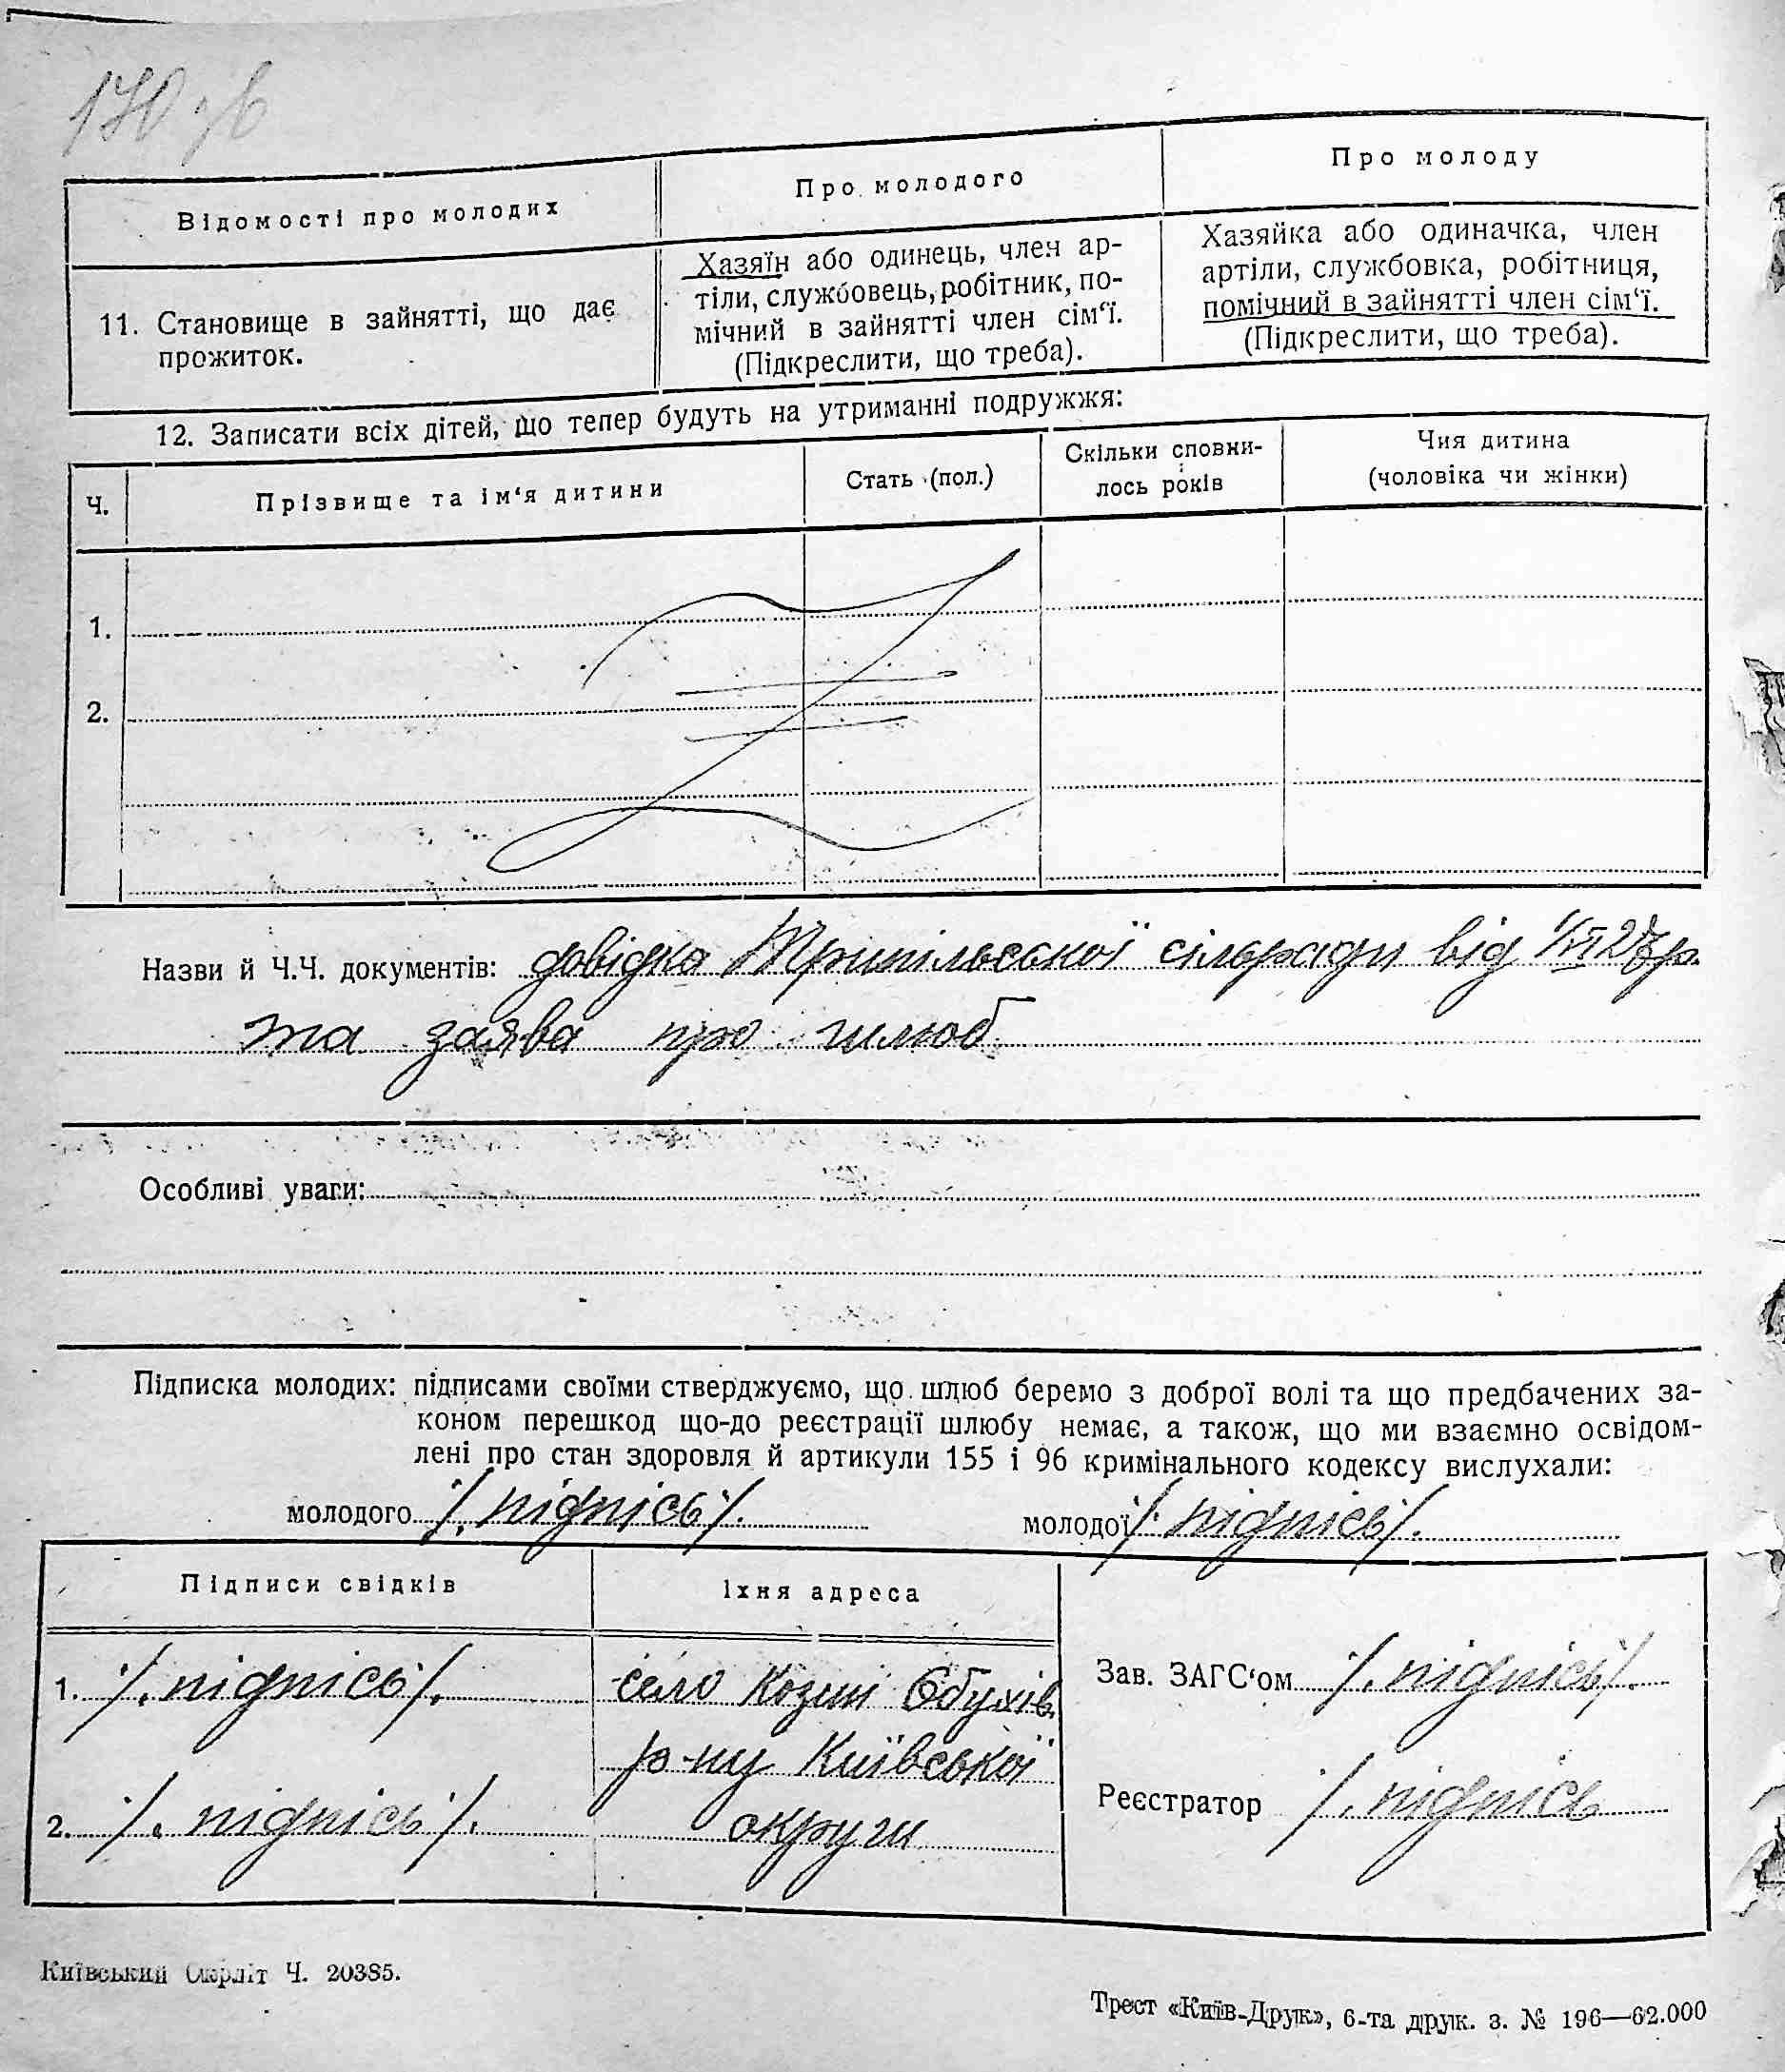 170 зв
Відомості про молодих
Про молодого
Про молоду
11. Становище в зайнятті, що дає
прожиток.
Хазяїн або одинець, член ар-
тіли, службовець, робітник, по-
мічний в зайнятті член сім‘ї.
(Підкреслити, що треба).
Хазяйка або одиначка, член
артіли, службовка, робітниця,
помічний в зайнятті член сім‘ї.
(Підкреслити, що треба).
12. Записати всіх дітей, що тепер будуть на утриманні подружжя:
Ч.
Прізвище та ім‘я дитини
Стать (пол.)
Скільки сповни-
лось років
Чия дитина
(чоловіка чи жінки)
1.
2.
Назви й Ч.Ч. документів: довідка Трипільської сільради від 1/VI 27 р.
та заява про шлюб
Особливі уваги:
Підписка молодих: підписами своїми стверджуємо, що шлюб беремо з доброї волі та що предбачених за-
коном перешкод що-до реєстрації шлюбу немає, а також, що ми взаємно освідом-
лені про стан здоровля й артикули 155 і 96 кримінального кодексу вислухали:
молодого /. підпісь /. молодої /. підпісь /.
Підписи свідків
Їхня адреса
1. /. підпісь /.
село Козин Обухів.
р-ну Київської
2. /. підпісь /.
округи
Зав. ЗАГС‘ом /. підпісь /.
Реєстратор /. підпісь
Київський Окрліт Ч. 20385.
Трест «Київ-Друк», 6-та друк. з. № 196—62.000